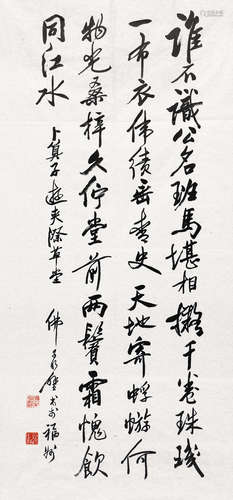 誰不識公名班馬堪相擬千卷珠璣
一布衣偉績垂青史天地寄蜉蝣何
物光桑梓久佇堂前兩鬢霜愧飲
同江水
卜算子遊夾漈草堂
佛子書於福州